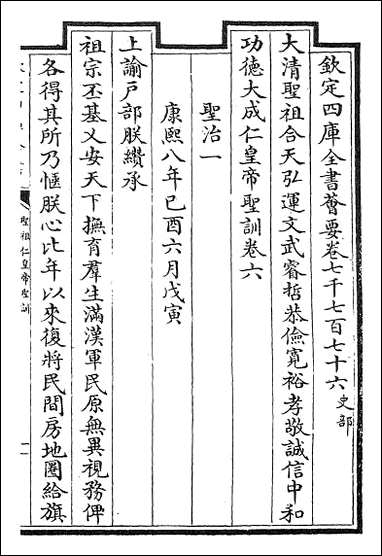 欽定四庫全書薈要卷七千七百七十六史部
大清聖祖合天弘運文武睿哲恭儉寬裕孝敬誠信中和
功德大成仁皇帝聖訓卷六
聖治一
康熙八年己酉六月戊寅
上諭戶部朕纘承
祖宗丕基乂安天下撫育羣生滿漢軍民原無異視務俾
各得其所乃愜朕心比年以來復將民間房地圈給旗
聖祖仁皇帝聖訓
一